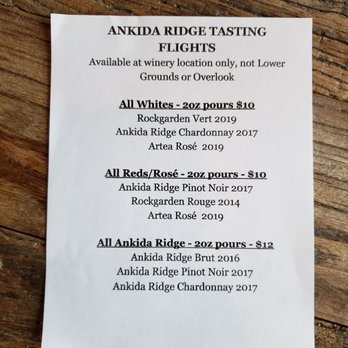 ANKIDA RIDGE TASTING
FLIGHTS
Available at winery location only, not Lower
Grounds or Overlook
All Whites - 2oz pours $10
Rockgarden Vert 2019
Ankida Ridge Chardonnay 2017
Artea Rosé 2019
All Reds/Rosé - 2oz pours - $10
Ankida Ridge Pinot Noir 2017
Rockgarden Rouge 2014
Artea Rosé 2019
All Ankida Ridge - 2oz pours - $12
Ankida Ridge Brut 2016
Ankida Ridge Pinot Noir 2017
Ankida Ridge Chardonnay 2017